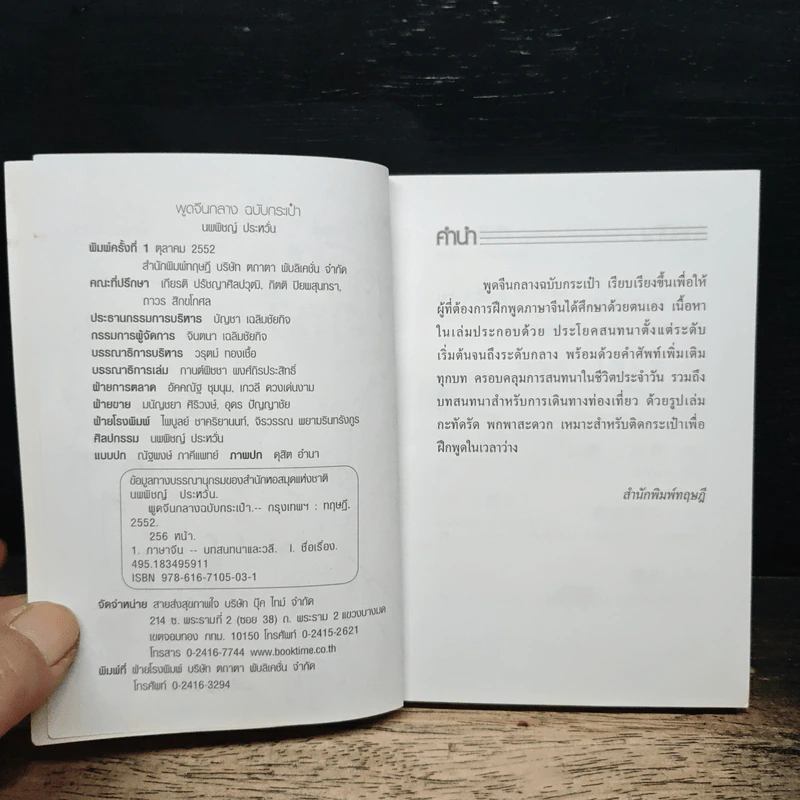 พูดจีนกลาง ฉบับกระเป๋า
นพพิชญ์ ประหวั่น
พิมพ์ครั้งที่ 1 ตุลาคม 2552
สำนักพิมพ์ทฤษฎี บริษัท ตถาตา พับลิเคชั่น จำกัด
คณะที่ปรึกษา เกียรติ ปรัชญาศิลปวุฒิ, กิตติ ปิยพสุนทรา,
ถาวร สิกขโกศล
ประธานกรรมการบริหาร บัญชา เฉลิมชัยกิจ
กรรมการผู้จัดการ จินตนา เฉลิมชัยกิจ
บรรณาธิการบริหาร วรุตม์ ทองเชื้อ
บรรณาธิการเล่ม กานต์พิชชา พงศ์ถิรประสิทธิ์
ฝ่ายการตลาด อัคคณัฐ ชุมนุม, เทวลี ดวงเด่นงาม
ฝ่ายขาย มนัญชยา ศิริวงษ์, อุดร ปัญญาชัย
ฝ่ายโรงพิมพ์ ไพบูลย์ ชาคริยานนท์, จิรวรรณ พยามรินทรังกูร
ศิลปกรรม นพพิชญ์ ประหวั่น
แบบปก ณัฐพงษ์ ภาคีแพทย์ ภาพปก ดุสิต อำนา
ข้อมูลทางบรรณานุกรมของสำนักหอสมุดแห่งชาติ
นพพิชญ์ ประหวั่น.
พูดจีนกลางฉบับกระเป๋า.-- กรุงเทพฯ : ทฤษฎี,
2552.
256 หน้า.
1. ภาษาจีน -- บทสนทนาและวลี. I. ชื่อเรื่อง.
495.183495911
ISBN 978-616-7105-03-1
จัดจำหน่าย สายส่งสุขภาพใจ บริษัท บุ๊ค ไทม์ จำกัด
214 ซ. พระรามที่ 2 (ซอย 38) ถ. พระราม 2 แขวงบางมด
เขตจอมทอง กทม. 10150 โทรศัพท์ 0-2415-2621
โทรสาร 0-2416-7744 www.booktime.co.th
พิมพ์ที่ ฝ่ายโรงพิมพ์ บริษัท ตถาตา พับลิเคชั่น จำกัด
โทรศัพท์ 0-2416-3294
คำนำ
พูดจีนกลางฉบับกระเป๋า เรียบเรียงขึ้นเพื่อให้
ผู้ที่ต้องการฝึกพูดภาษาจีนได้ศึกษาด้วยตนเอง เนื้อหา
ในเล่มประกอบด้วย ประโยคสนทนาตั้งแต่ระดับ
เริ่มต้นจนถึงระดับกลาง พร้อมด้วยคำศัพท์เพิ่มเติม
ทุกบท ครอบคลุมการสนทนาในชีวิตประจำวัน รวมถึง
บทสนทนาสำหรับการเดินทางท่องเที่ยว ด้วยรูปเล่ม
กะทัดรัด พกพาสะดวก เหมาะสำหรับติดกระเป๋าเพื่อ
ฝึกพูดในเวลาว่าง
สำนักพิมพ์ทฤษฎี